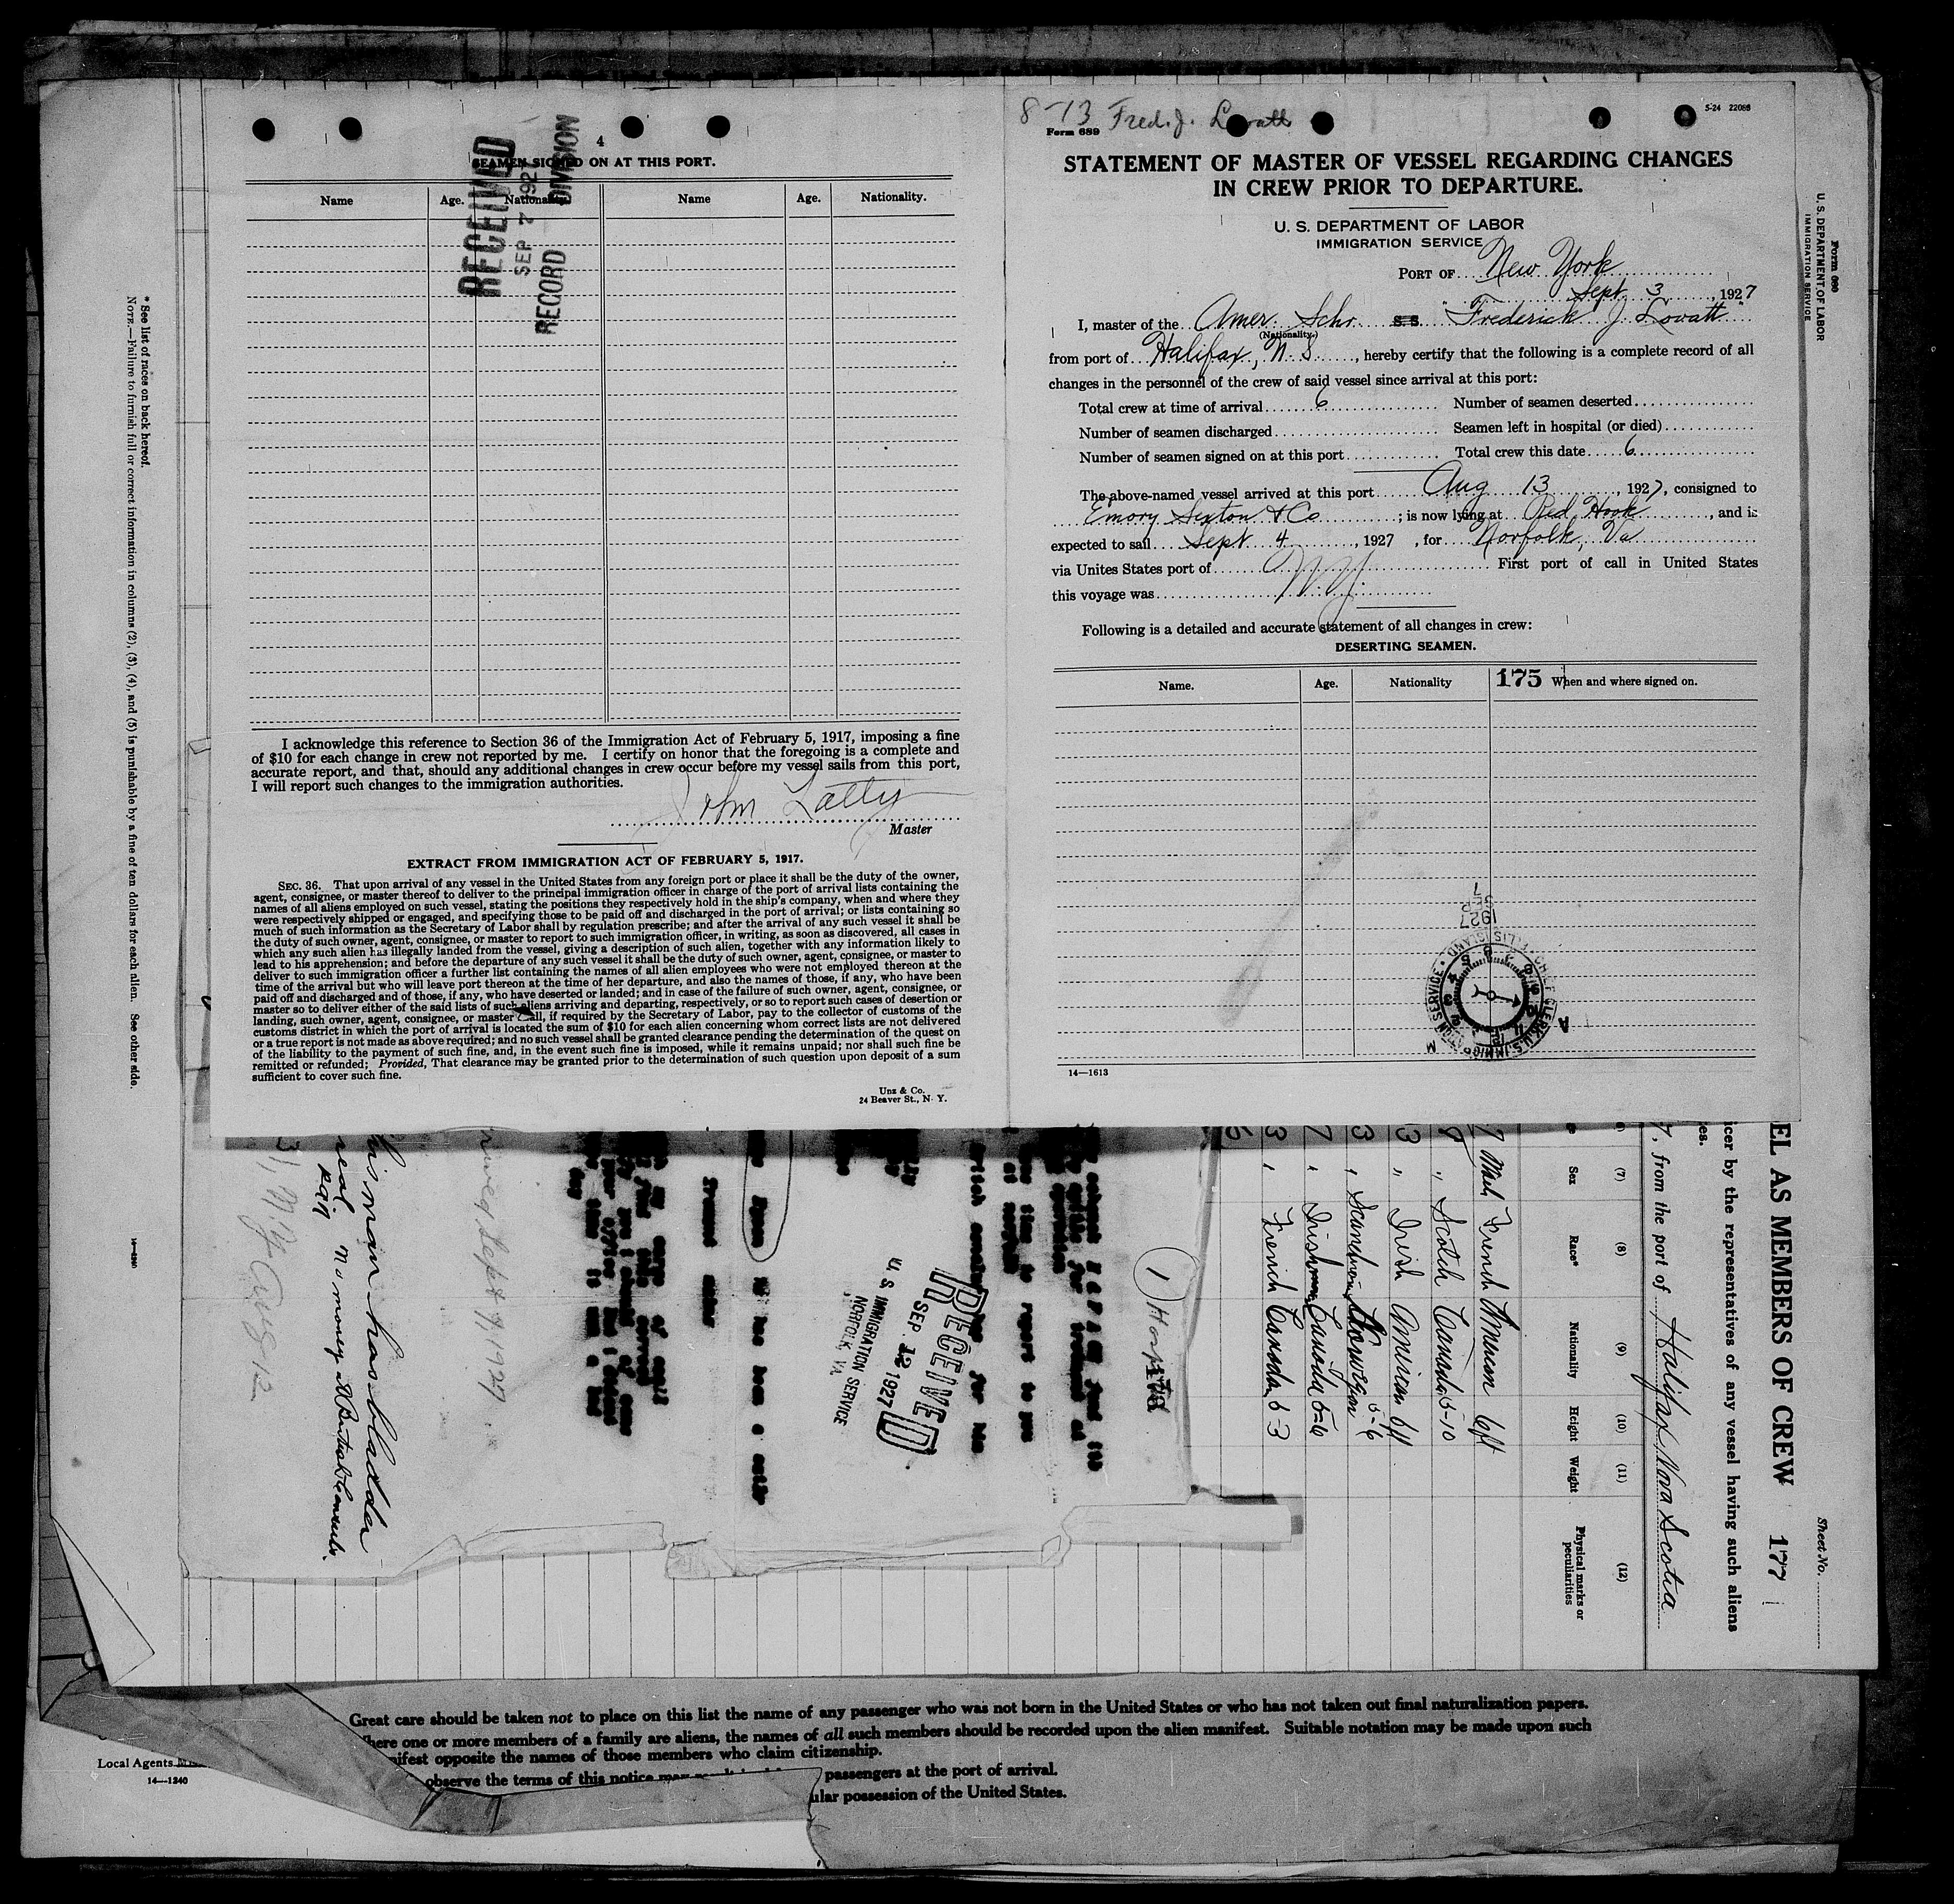 4
SEAMEN SIGNED ON AT THIS PORT.
Name Age. Nationality. Name Age. Nationality.
RECEIVED
SEP 7 1927
RECORD DIVISION
I acknowledge this reference to Section 36 of the Immigration Act of February 5, 1917, imposing a fine
of $10 for each change in crew not reported by me. I certify on honor that the foregoing is a complete and
accurate report, and that, should any additional changes in crew occur before my vessel sails from this port,
I will report such changes to the immigration authorities.
John
Master
EXTRACT FROM IMMIGRATION ACT OF FEBRUARY 5, 1917.
SEC. 36. That upon arrival of any vessel in the United States from any foreign port or place it shall be the duty of the owner,
agent, consignee, or master thereof to deliver to the principal immigration officer in charge of the port of arrival lists containing the
names of all aliens employed on such vessel, stating the positions they respectively hold in the ship's company, when and where they
were respectively shipped or engaged, and specifying those to be paid off and discharged in the port of arrival; or lists containing so
much of such information as the Secretary of Labor shall by regulation prescribe; and after the arrival of any such vessel it shall be
the duty of such owner, agent, consignee, or master to report to such immigration officer, in writing, as soon as discovered, all cases in
which any such alien has illegally landed from the vessel, giving a description of such alien, together with any information likely to
lead to his apprehension; and before the departure of any such vessel it shall be the duty of such owner, agent, consignee, or master to
deliver to such immigration officer a further list containing the names of all alien employees who were not employed thereon at the
time of the arrival but who will leave port thereon at the time of her departure, and also the names of those, if any, who have been
paid off and discharged and of those, if any, who have deserted or landed; and in case of the failure of such owner, agent, consignee, or
master so to deliver either of the said lists of such aliens arriving and departing, respectively, or so to report such cases of desertion or
landing, such owner, agent, consignee, or master shall, if required by the Secretary of Labor, pay to the collector of customs of the
customs district in which the port of arrival is located the sum of $10 for each alien concerning whom correct lists are not delivered
or a true report is not made as above required; and no such vessel shall be granted clearance pending the determination of the quest on
of the liability to the payment of such fine, and, in the event such fine is imposed, while it remains unpaid; nor shall such fine be
remitted or refunded; Provided, That clearance may be granted prior to the determination of such question upon deposit of a sum
sufficient to cover such fine.
Unz & Co.
24 Beaver St., N. Y.
8-13 Fred. J. Lovatt
5-24 22086
Form 689
STATEMENT OF MASTER OF VESSEL REGARDING CHANGES
IN CREW PRIOR TO DEPARTURE.
U. S. DEPARTMENT OF LABOR
IMMIGRATION SERVICE
PORT OF New York
Sept 3, 1927
I, master of the Amer Schr. SS "Frederick J. Lovatt"
(Nationality.)
from port of Halifax, N. S., hereby certify that the following is a complete record of all
changes in the personnel of the crew of said vessel since arrival at this port:
Total crew at time of arrival 6 Number of seamen deserted
Number of seamen discharged Seamen left in hospital (or died)
Number of seamen signed on at this port Total crew this date 6
The above-named vessel arrived at this port Aug 13, 1927, consigned to
Emory Sexton & Co; is now lying at Red Hook, and is
expected to sail Sept 4, 1927, for Norfolk, Va
via Unites States port of First port of call in United States
this voyage was N.Y.
Following is a detailed and accurate statement of all changes in crew:
DESERTING SEAMEN.
Name. Age. Nationality 175 When and where signed on.
1927
SEP
7
14—1613
* See list of races on back hereof.
NOTE.—Failure to furnish full or correct information in columns (2), (3), (4), and (5) is punishable by a fine of ten dollars for each alien. See other side.
Form 680
U. S. DEPARTMENT OF LABOR
IMMIGRATION SERVICE
Sheet No.
EL AS MEMBERS OF CREW 177
icer by the representatives of any vessel having such aliens
7, from the port of Halifax Nova Scotia
(7) (8) (9) (10) (11) (12)
Sex Race* Nationality Height Weight Physical marks or peculiarities
Male French American 6ft
" Scotch Canada 5-10
" Irish American 6ft
" Norwegian 5-6
" Irish Canada 5-6
" French Canada 5-3
RECEIVED
SEP. 12 1927
U. S. IMMIGRATION SERVICE
NORFOLK, VA.
Sept 7, 1927
man has bladder
no money
Aug 12
Great care should be taken not to place on this list the name of any passenger who was not born in the United States or who has not taken out final naturalization papers.
here one or more members of a family are aliens, the names of all such members should be recorded upon the alien manifest. Suitable notation may be made upon such
nifest opposite the names of those members who claim citizenship.
observe the terms of this notice may result in passengers at the port of arrival.
ular possession of the United States.
Local Agents
14—1240